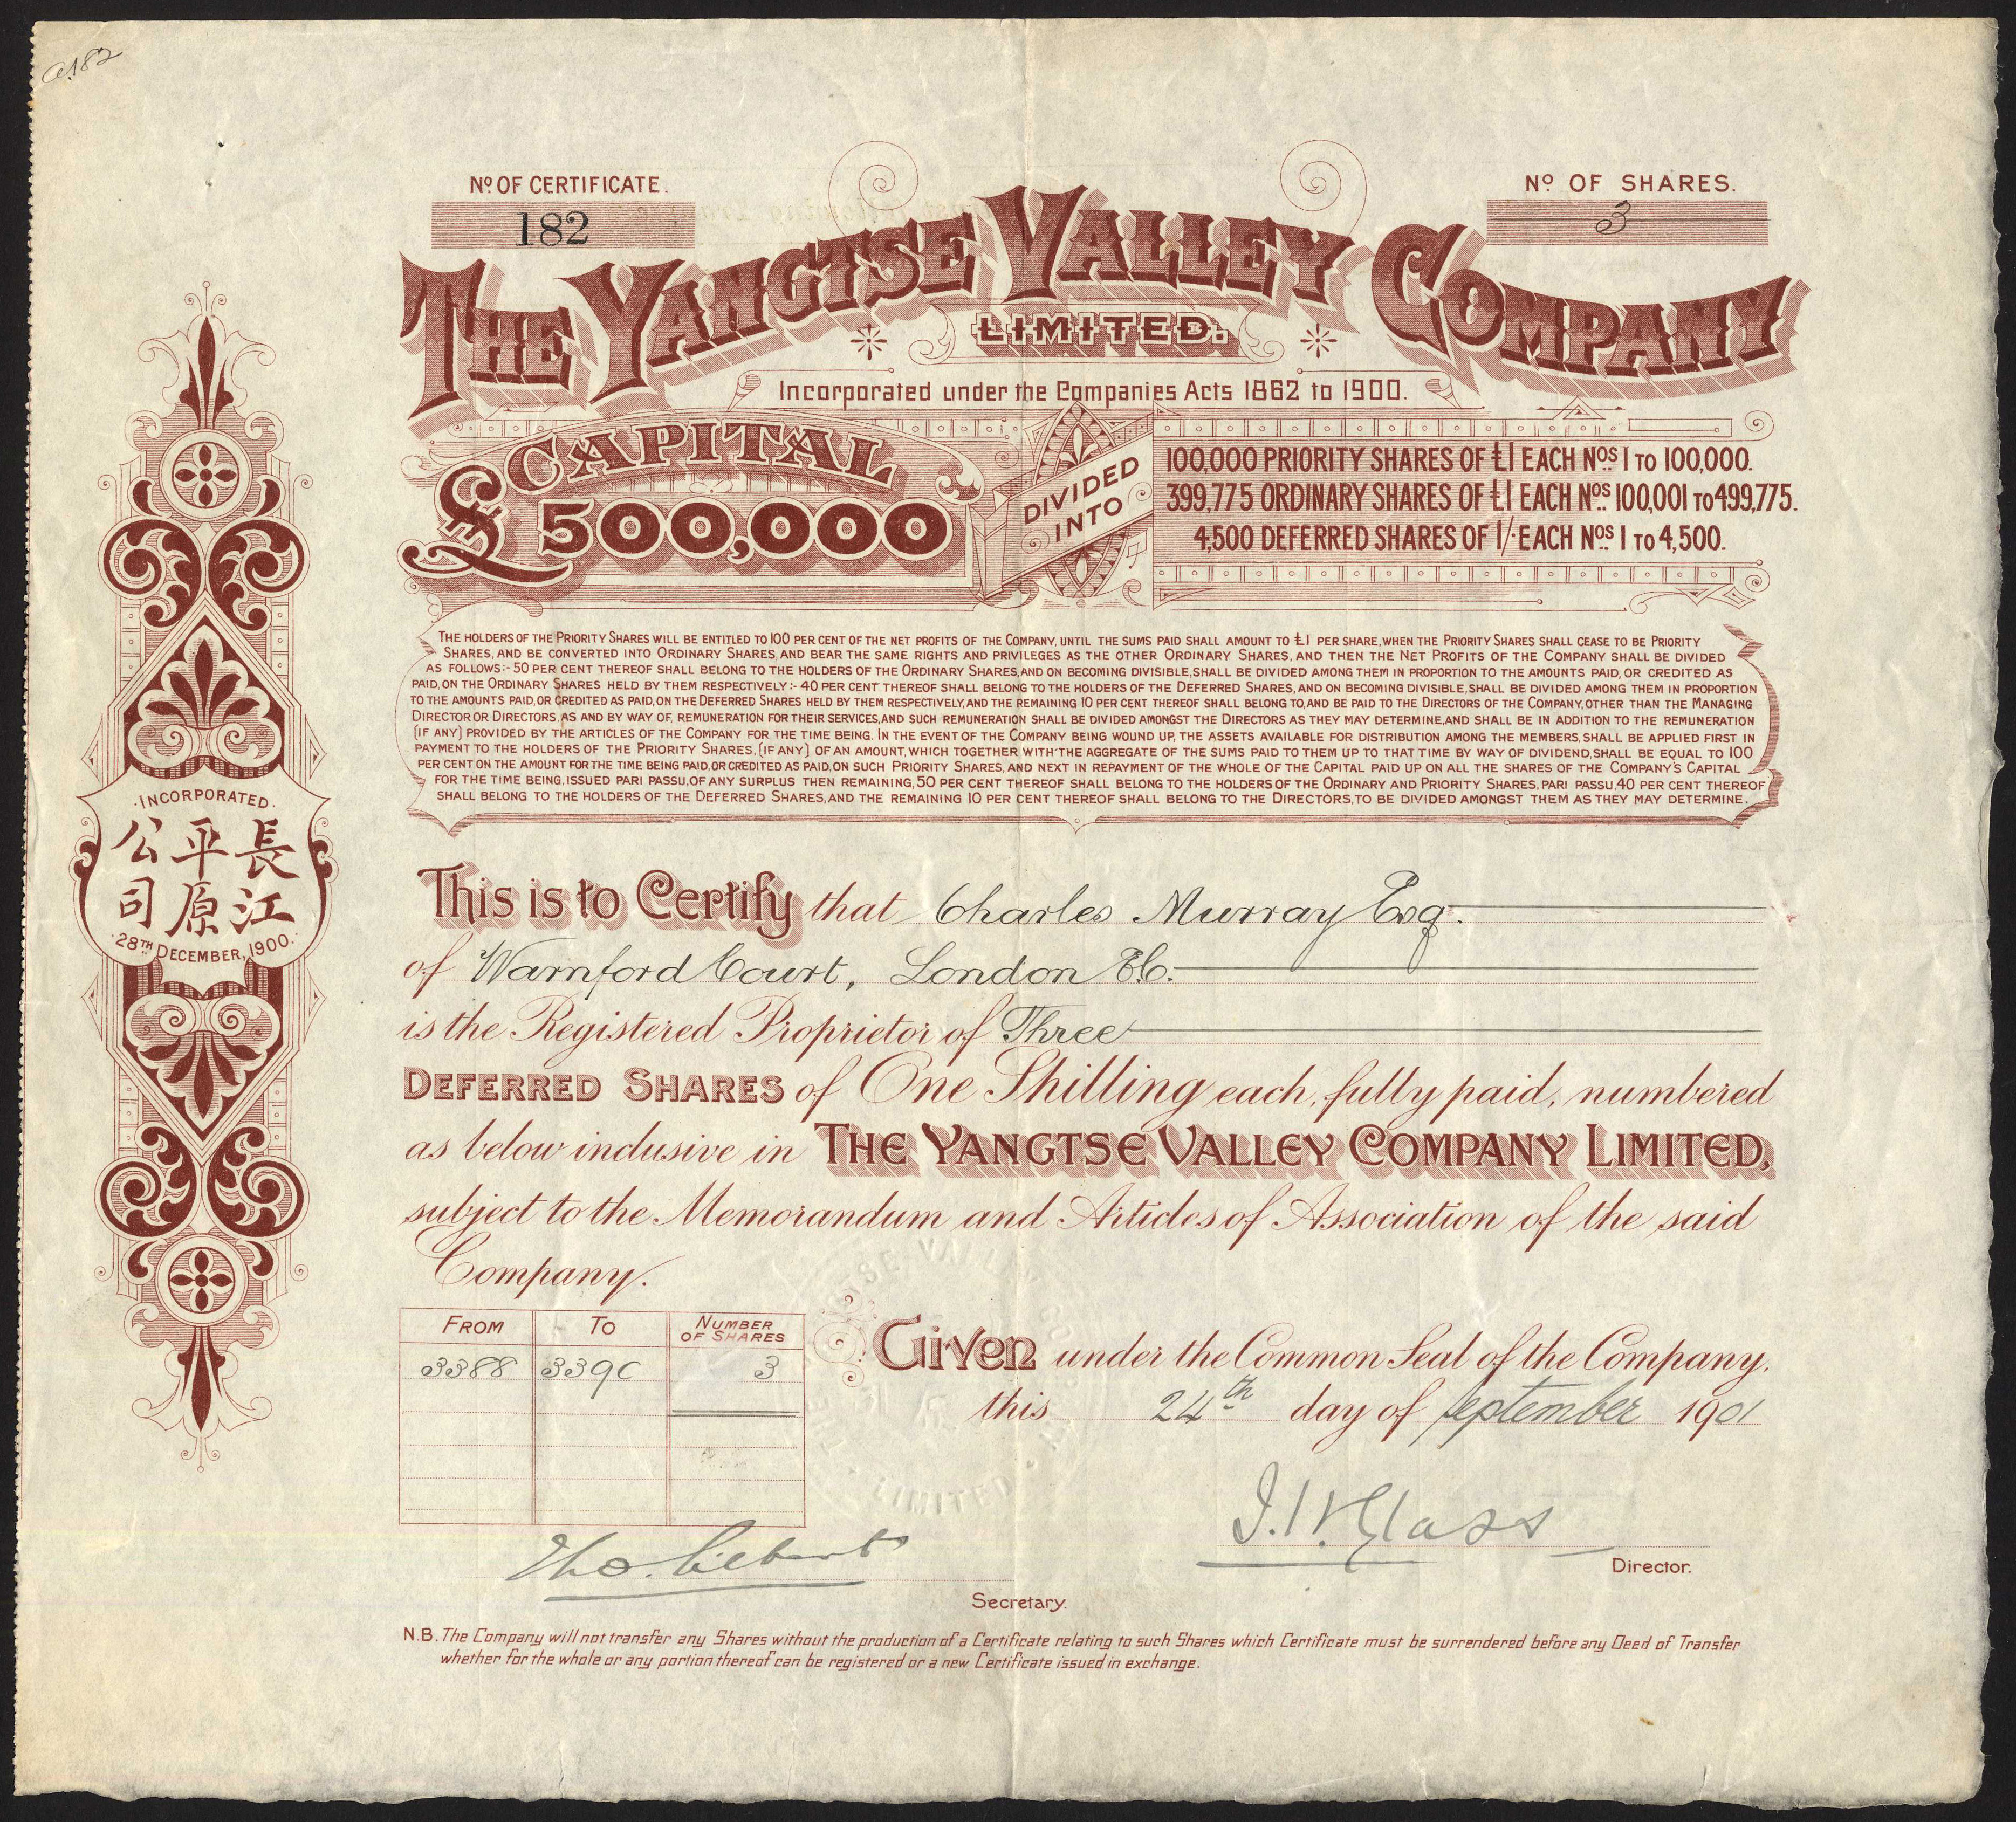 a182
Nº OF CERTIFICATE.
182
Nº OF SHARES.
3
THE YANGTSE VALLEY COMPANY
LIMITED.
Incorporated under the Companies Acts 1862 to 1900.
CAPITAL
£500,000
DIVIDED
INTO
100,000 PRIORITY SHARES OF £1 EACH Nos 1 TO 100,000.
399,775 ORDINARY SHARES OF £1 EACH Nos 100,001 TO 499,775.
4,500 DEFERRED SHARES OF 1/- EACH Nos 1 TO 4,500.
THE HOLDERS OF THE PRIORITY SHARES WILL BE ENTITLED TO 100 PER CENT OF THE NET PROFITS OF THE COMPANY, UNTIL THE SUMS PAID SHALL AMOUNT TO £1 PER SHARE, WHEN THE PRIORITY SHARES SHALL CEASE TO BE PRIORITY
SHARES, AND BE CONVERTED INTO ORDINARY SHARES, AND BEAR THE SAME RIGHTS AND PRIVILEGES AS THE OTHER ORDINARY SHARES, AND THEN THE NET PROFITS OF THE COMPANY SHALL BE DIVIDED
AS FOLLOWS:- 50 PER CENT THEREOF SHALL BELONG TO THE HOLDERS OF THE ORDINARY SHARES, AND ON BECOMING DIVISIBLE, SHALL BE DIVIDED AMONG THEM IN PROPORTION TO THE AMOUNTS PAID, OR CREDITED AS
PAID, ON THE ORDINARY SHARES HELD BY THEM RESPECTIVELY:- 40 PER CENT THEREOF SHALL BELONG TO THE HOLDERS OF THE DEFERRED SHARES, AND ON BECOMING DIVISIBLE, SHALL BE DIVIDED AMONG THEM IN PROPORTION
TO THE AMOUNTS PAID, OR CREDITED AS PAID, ON THE DEFERRED SHARES HELD BY THEM RESPECTIVELY, AND THE REMAINING 10 PER CENT THEREOF SHALL BELONG TO, AND BE PAID TO THE DIRECTORS OF THE COMPANY, OTHER THAN THE MANAGING
DIRECTOR OR DIRECTORS, AS AND BY WAY OF, REMUNERATION FOR THEIR SERVICES, AND SUCH REMUNERATION SHALL BE DIVIDED AMONGST THE DIRECTORS AS THEY MAY DETERMINE, AND SHALL BE IN ADDITION TO THE REMUNERATION
(IF ANY) PROVIDED BY THE ARTICLES OF THE COMPANY FOR THE TIME BEING. IN THE EVENT OF THE COMPANY BEING WOUND UP, THE ASSETS AVAILABLE FOR DISTRIBUTION AMONG THE MEMBERS, SHALL BE APPLIED FIRST IN
PAYMENT TO THE HOLDERS OF THE PRIORITY SHARES, (IF ANY) OF AN AMOUNT, WHICH TOGETHER WITH THE AGGREGATE OF THE SUMS PAID TO THEM UP TO THAT TIME BY WAY OF DIVIDEND, SHALL BE EQUAL TO 100
PER CENT ON THE AMOUNT FOR THE TIME BEING PAID, OR CREDITED AS PAID, ON SUCH PRIORITY SHARES, AND NEXT IN REPAYMENT OF THE WHOLE OF THE CAPITAL PAID UP ON ALL THE SHARES OF THE COMPANY'S CAPITAL
FOR THE TIME BEING, ISSUED PARI PASSU, OF ANY SURPLUS THEN REMAINING, 50 PER CENT THEREOF SHALL BELONG TO THE HOLDERS OF THE ORDINARY AND PRIORITY SHARES, PARI PASSU, 40 PER CENT THEREOF
SHALL BELONG TO THE HOLDERS OF THE DEFERRED SHARES, AND THE REMAINING 10 PER CENT THEREOF SHALL BELONG TO THE DIRECTORS, TO BE DIVIDED AMONGST THEM AS THEY MAY DETERMINE.
INCORPORATED.
長江
平原
公司
28TH DECEMBER, 1900.
This is to Certify that Charles Murray Esq.
of Warnford Court, London E.C.
is the Registered Proprietor of Three
DEFERRED SHARES of One Shilling each, fully paid, numbered
as below inclusive in THE YANGTSE VALLEY COMPANY LIMITED,
subject to the Memorandum and Articles of Association of the said
Company.
FROM TO NUMBER OF SHARES
3388 3390 3
Given under the Common Seal of the Company,
this 24th day of September 1901
LIMITED
Director.
Secretary.
N.B. The Company will not transfer any Shares without the production of a Certificate relating to such Shares which Certificate must be surrendered before any Deed of Transfer
whether for the whole or any portion thereof can be registered or a new Certificate issued in exchange.